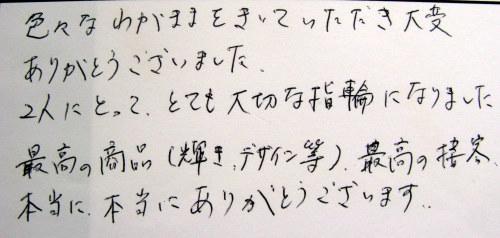 色々なわがままをきいていただき大変
ありがとうございました.
2人にとって、とても大切な指輪になりました
最高の商品(輝き、デザイン等)、最高の接客.
本当に、本当にありがとうございます..